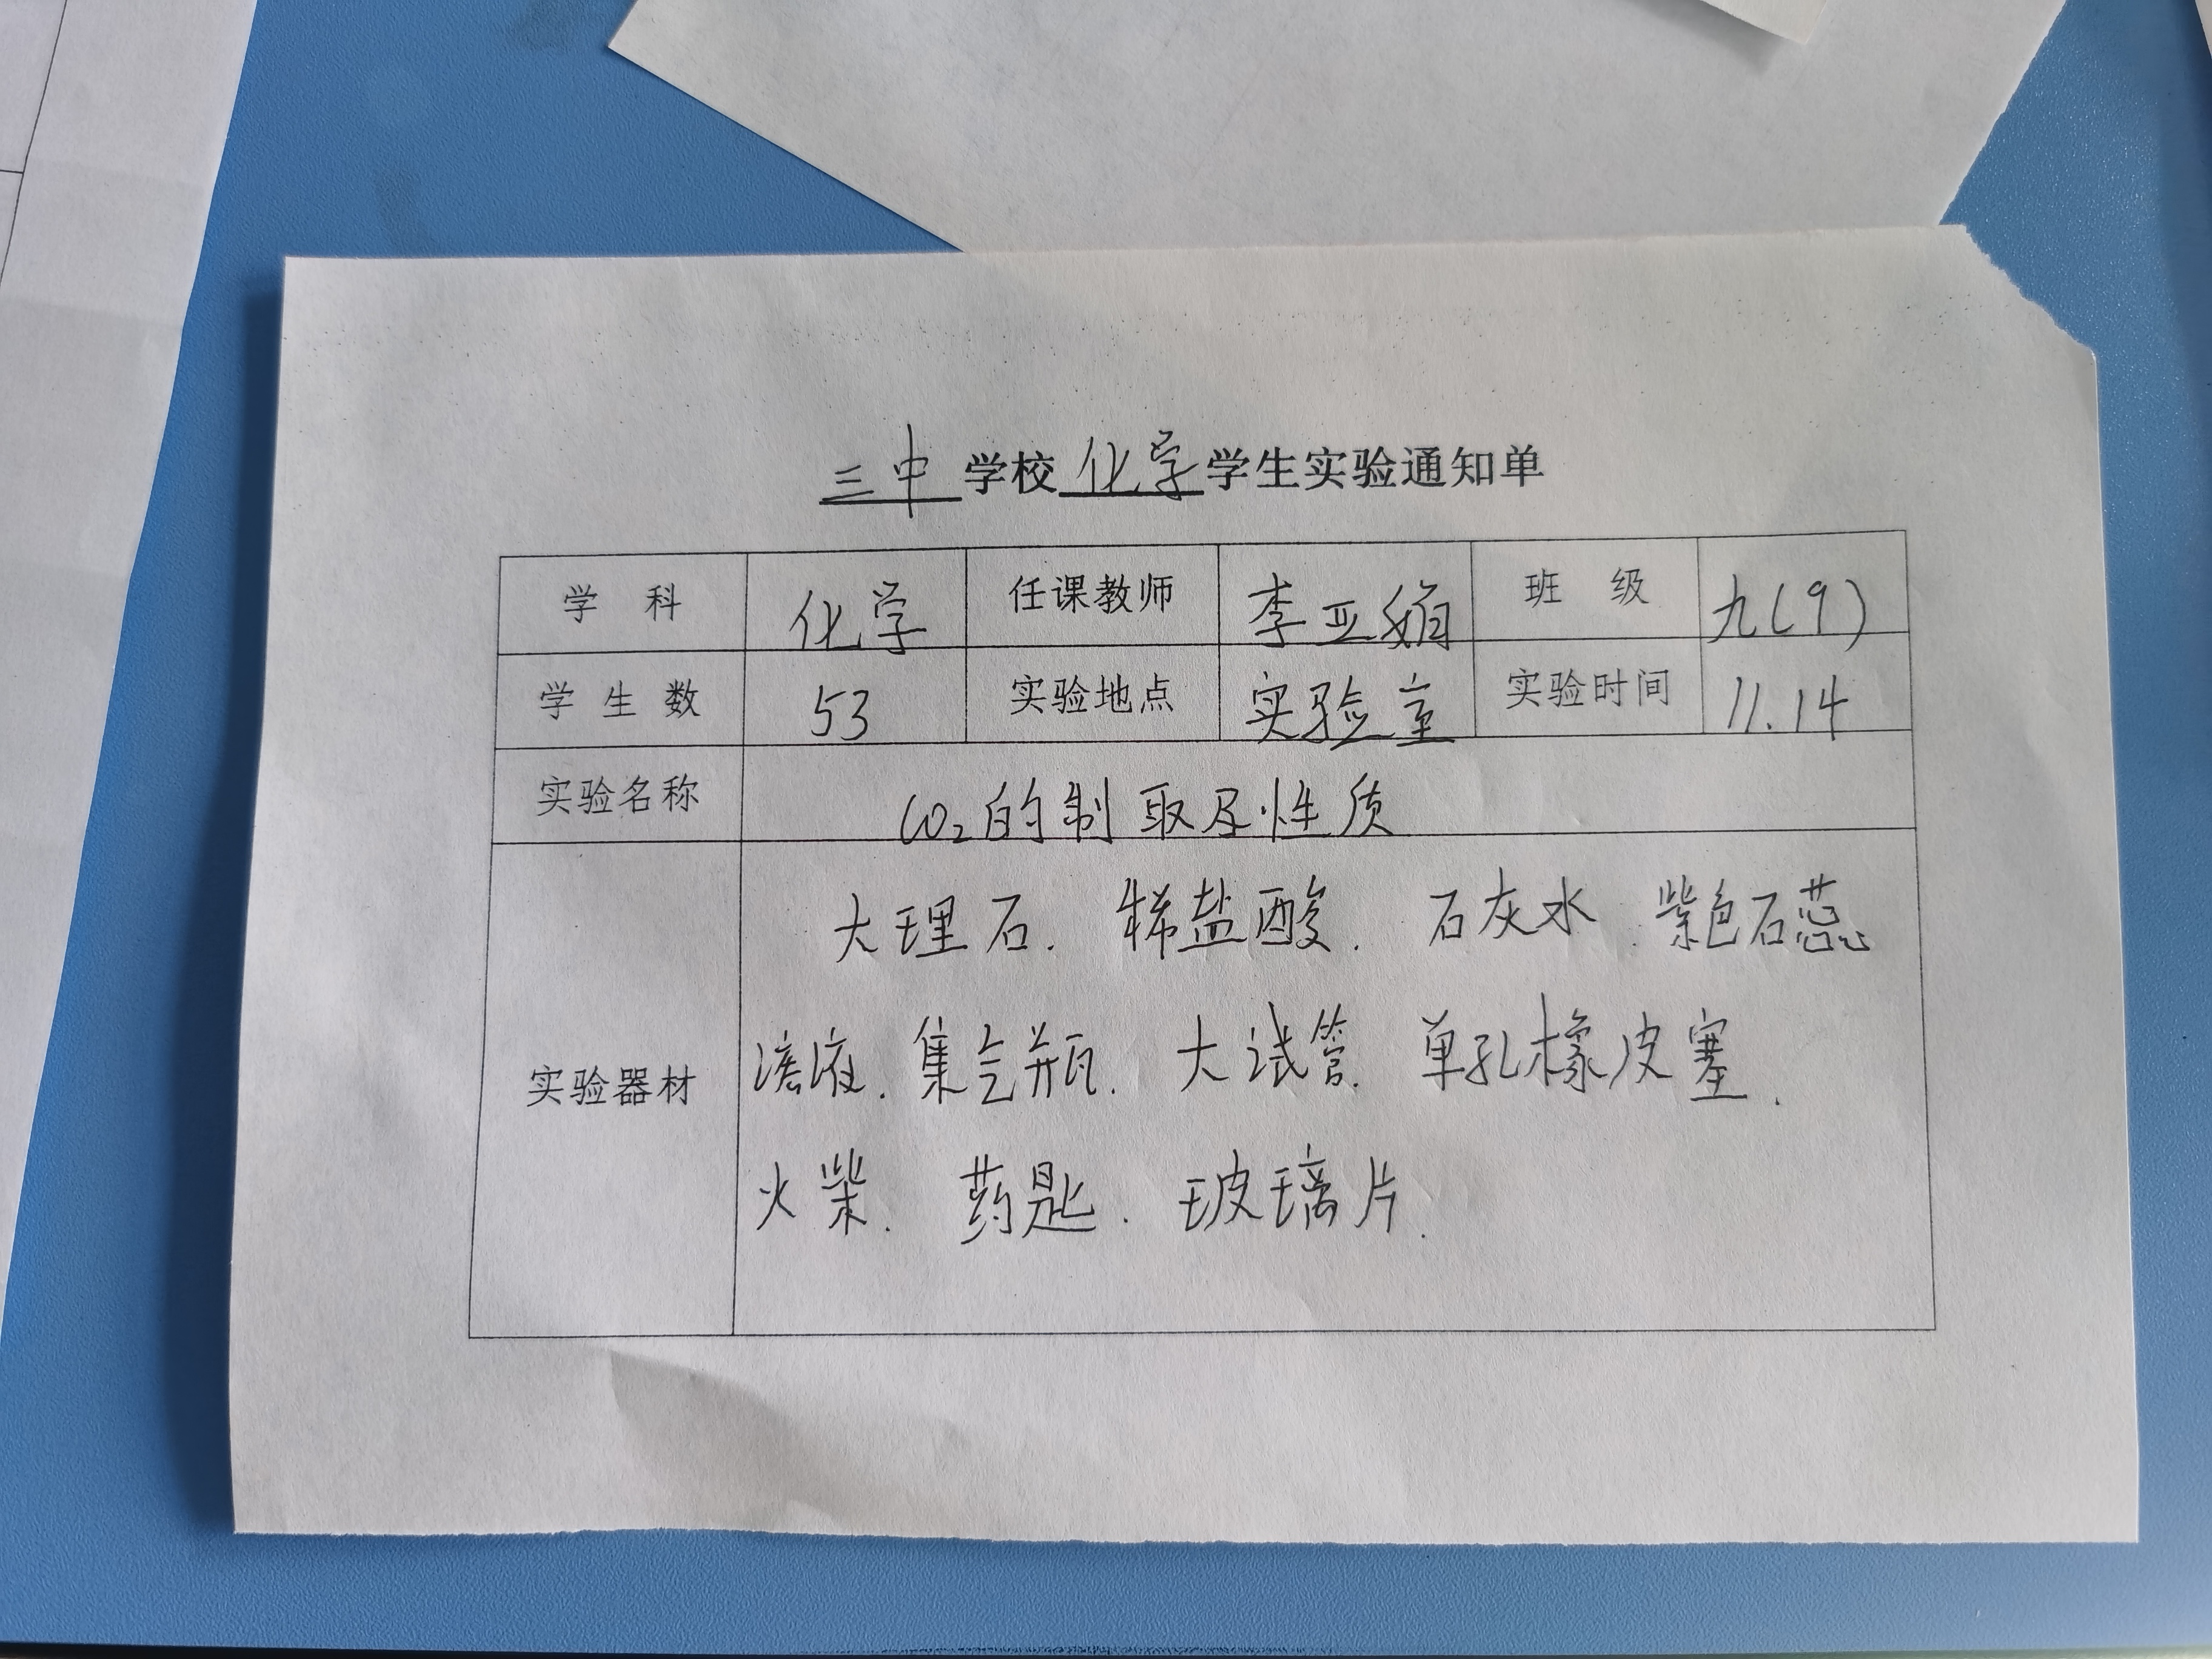 三中学校化学学生实验通知单
学科 化学 任课教师 李亚娟 班级 九(9)
学生数 53 实验地点 实验室 实验时间 11.14
实验名称 CO₂的制取及性质
大理石. 稀盐酸. 石灰水. 紫色石蕊
实验器材 溶液. 集气瓶. 大试管. 单孔橡皮塞.
火柴. 药匙. 玻璃片.